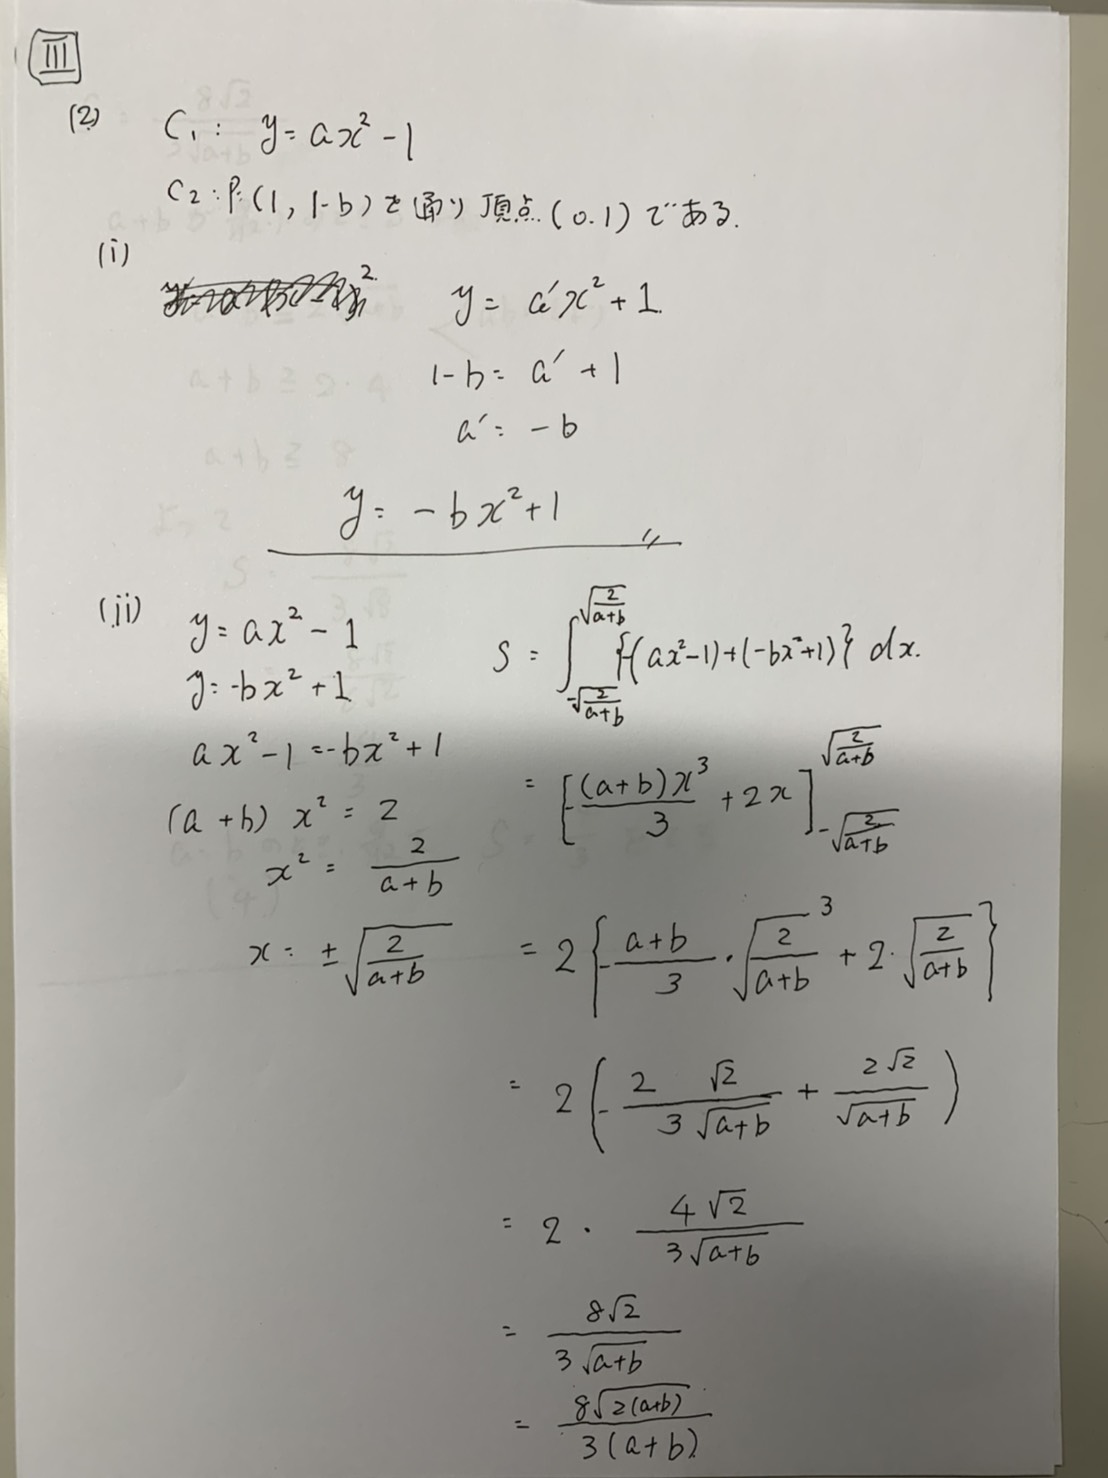 III
(2) C₁: y=ax²-1
C₂: P:(1, 1-b)を通り頂点(0.1)である.
(i)
y= a'x²+1.
1-b= a'+1
a'= -b
y= -bx²+1
(ii)
y=ax²-1
y=-bx²+1
ax²-1=-bx²+1
(a+b) x²=2
x²= 2/(a+b)
x= ±√(2/(a+b))
S = ∫_{-√(2/(a+b))}^{√(2/(a+b))} {-(ax²-1)+(-bx²+1)} dx.
= [-(a+b)x³/3 +2x]_{-√(2/(a+b))}^{√(2/(a+b))}
= 2{-(a+b)/3 · √(2/(a+b))³ + 2·√(2/(a+b))}
= 2(-2√2/(3√(a+b)) + 2√2/√(a+b))
= 2 · 4√2/(3√(a+b))
= 8√2/(3√(a+b))
= 8√(2(a+b))/(3(a+b))